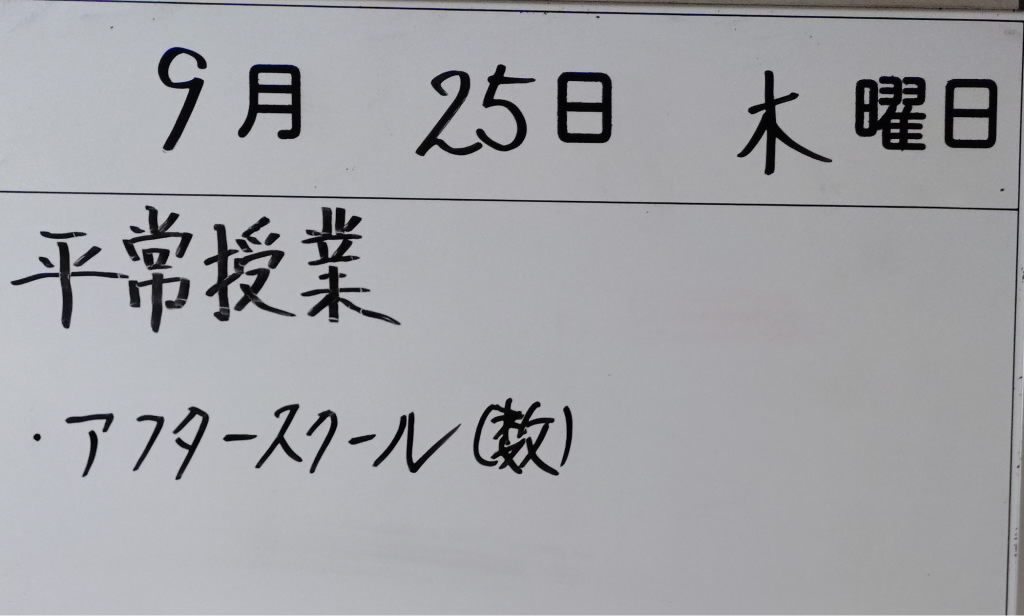 9月 25日 木曜日
平常授業
・アフタースクール(数)